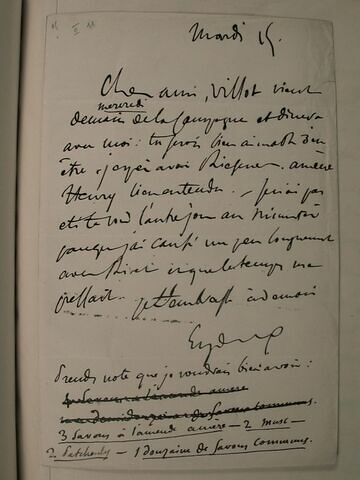 Mardi 15.
Cher ami, Villot vient
mercredi
demain de la Campagne et dinera
avec moi: tu serais bien aimable d'en
être. j'espère avoir Riesener. amène
Henry bien entendu. - je n'ai pas
été te voir l'autre jour au
parceque j'ai causé un peu longuement
avec et que le temps me
pressait. je t'embrasse à demain
Eug
Prends note que je voudrais bien avoir:
3 Savons à l'amende amère - 2 musc -
2 Patchouly - 1 douzaine de Savons Communs.